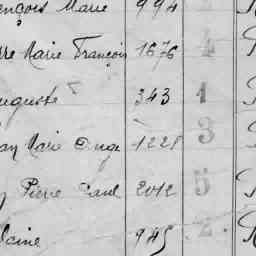 ençois Marie 994
rre Marie François 1676 4
uguste 343 1
an Marie Ange 1228 3
Pierre Paul 2012 5
laire 945 2